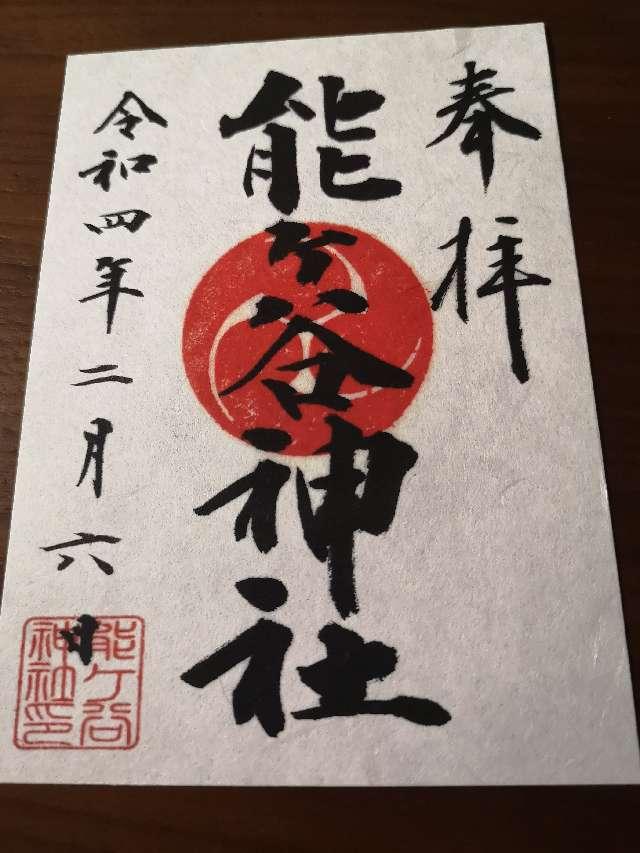 奉拝
能ヶ谷神社
令和四年二月六日
能ヶ谷
神社印